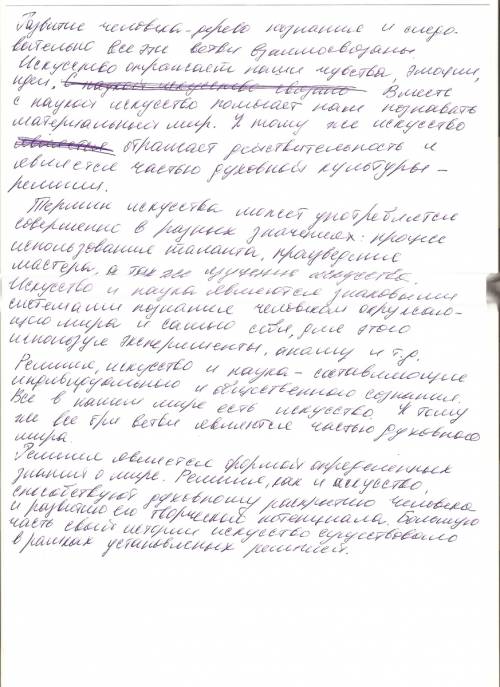 Развитие человека - дерево познания и следо-
вательно все эти ветви взаимосвязаны
Искусство отражает наши чувства, эмоции,
идеи, с наукой искусство связано Вместе
с наукой искусство помогает нам познавать
материальный мир. К тому же искусство
является отражает действительность и
является частью духовной культуры -
религии.
Термин искусства может употребляться
совершенно в разных значениях: процесс
использования таланта, произведения
мастера, а так же изучению искусства.
Искусство и наука являются знаковыми
системами познания человеком окружаю-
щего мира и самого себя, для этого
используя эксперименты, анализ и т.д.
Религия, искусство и наука - составляющие
индивидуального и общественного сознания.
Все в нашем мире есть искусство. К тому
же все три ветви являются частью духовного
мира.
Религия является формой определенных
знаний о мире. Религия, как и искусство,
способствуют духовному раскрытию человека
и развитию его творческого потенциала. Большую
часть своей истории искусство существовало
в рамках установленных религией.